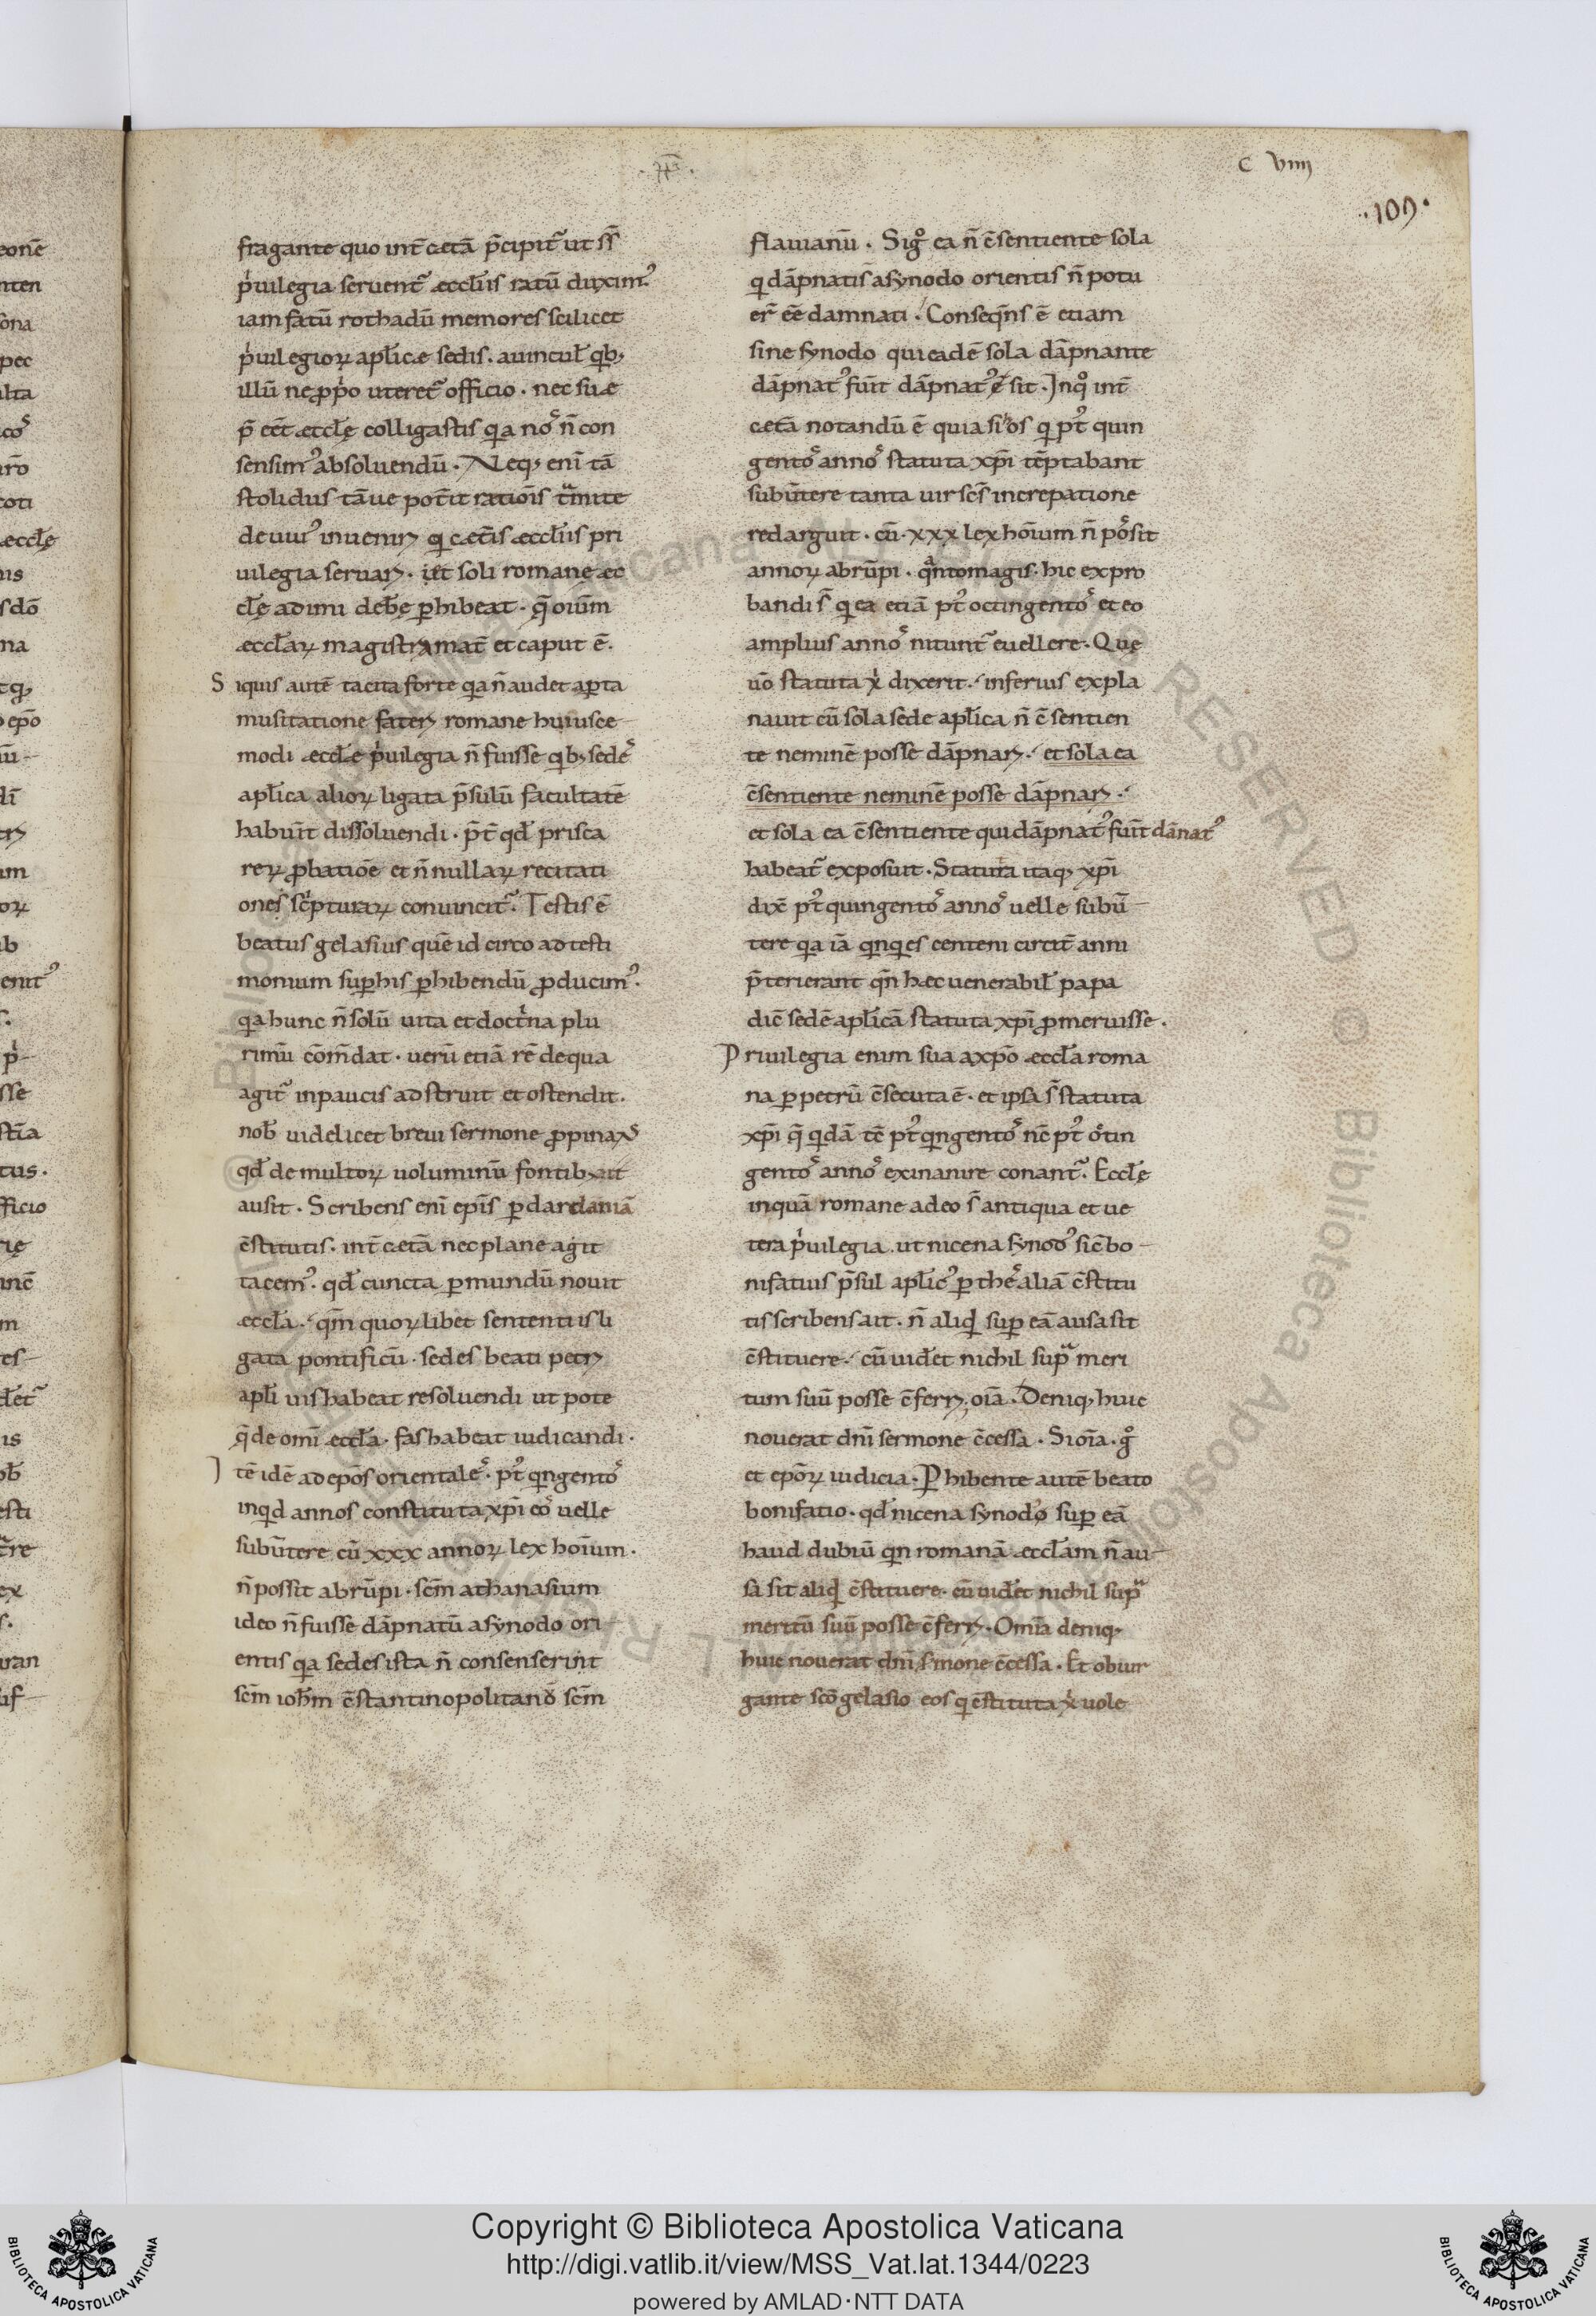 C VIIII
·109·
fragante quo int̄ cetā p̄cipit᷑ ut ss̄
p̍uilegia seruent᷑ æccl̄iis ratū duxim᷒
iam fatū rothadū memores scilicet
p̍uilegioꝝ apl̄icæ sedis. a uincul̄ qb;
illū ne ꝓp̍o uteret᷑ officio. nec suæ
p̄ eēt æccle̜ colligastis q̣a no᷒ n̄ con
sensim᷒ absoluendū. Neq; eni tā
stolidus tāue pot̄it ratiōis t̄mite
deuius inueniꝝ q cet̄is æccl̄iis pri
uilegia seruaꝝ. et soli romane̜ æc
cle̜ adimi debe̜ꝑhibeat. q̄ oiūm
æcclaꝝ magistra mat̄ et caput ē.
Siquis autē tacita forte q̣a n̄ audet aꝑta
musitatione fateꝝ romane huiusce
modi æcclæ p̍uilegia n̄ fuisse qb; sede᷒
apl̄ica alioꝝ ligata p̄sulū facultatē
habuīt dissoluendi. p̄t̄ qd̄ prisca
reꝝ ꝓbatiōe et n̄nullaꝝ recitati
ones sc̍pturaꝝ conuincit᷑. Testis ē
beatus gelasius quē id circo ad testi
monium suꝑ his ꝑhibendū ꝓducim᷒.
q̣a hunc n̄ solū uita et doct̍na plu
rimū cōm̄dat. uerū etiā rē de qua
agit᷑ in paucis ad struit et ostendit.
nob̄ uidelicet breui sermone ꝓpinaꝝ
qd̄ de multoꝝ uoluminū fontib; att
ausit. Scribens eni ep̄is ꝑ dardaniā
c̄stitutis. int̄ cetā nec plane agit
tacem᷒. qd̄ cuncta ꝑ mundū nouit
æccl̄a. qm̄ quoꝝ libet sententiis li
gata pontificū. sedes beati petri
apl̄i uis habeat resoluendi ut pote
q̄ de omī æccl̄a. fas habeat iudicandi.
Itē idē ad epōs orientale᷒. pt᷒ qngento᷒
inqd annos constituta xp̄i eo᷒ uelle
subūtere cū xxx annoꝝ lex hoīum.
n̄ possit abrūpi. sc̄m athanasium
ideo n̄ fuisse dāpnatū a synodo ori
entis q̣a sedes ista n̄ consenserint
sc̄m ioh̄m c̄stantinopolitano᷒ sc̄m
flauianū. Sig̊ ea n̄ c̄sentiente sola
q dāpnatis a synodo orientis n̄ potu
er̄ eē damnati. Conseq̄ns ē etiam
sine synodo qui eadē sola dāpnante
dāpnat᷒ fuit̄ dāpnat᷒ sit. Inq̊ int̄
cetā notandū ē quia si hos q pt᷒ quin
gento᷒ anno᷒ statuta xp̄i tēptabant
subūtere tanta uir sc̄s increpatione
redarguit. cū. xxx lex hoīum n̄ po᷒sit
annoꝝ abrūpi. q̄nto magis. hic expro
bandi s̄ q ea etiā pt᷒ octingento᷒ et eo
amplius anno᷒ nitunt᷑ euellere. Que̜
uō statuta x̍ dixerit. inferius expla
nauit cū sola sede apl̄ica n̄ c̄sentien
te neminē posse dāpnaꝝ. et sola ea
c̄sentiente neminē posse dāpnaꝝ.
et sola ea c̄sentiente qui dāpnat᷒ fuit̄ dānat᷒
habeat᷑ exposuit. Statuta itaq; xp̄i
dix̄ pt᷒ quingento᷒ anno᷒ uelle subū
tere q̣a iā qnqes centeni circit̄ anni
p̄terierant qn̄ hæc uenerabil̄ papa
dic̄ sedē apl̄icā statuta xp̄i ꝓmeruisse.
Priuilegia enim sua a xp̄o æccl̄a roma
na ꝑ petrū c̄secuta ē. et ipsa s̄ statuta
xp̄i q̄ qdā tē pt᷒ qngento᷒ nc̄ pt᷒ octin
gento᷒ anno᷒ exinanire conant᷑. Eccle̜
inquā romane adeo s̄ antiqua et ue
tera p̍uilegia. ut nicena synod᷒ sic̄ bo
nifatius p̄sul apl̄ic᷒ ꝑ the᷒aliā c̄stitu
tis scribens ait. n̄ aliqd suꝑ eā ausa sit
c̄stituere. cū uidet nichil supᷓ meri
tum suū posse c̄ferꝝ. oīa. Deniq; huic
nouerat dn̄i sermone c̄cessa. Si oīa. g̊
et epōꝝ iudicia. Perhibente autē beato
bonifatio. qd̄ nicena synodo suꝑ eā
haud dubiū qn romanā æccl̄am n̄ au
sa sit aliqd c̄stituere. cū uidet nichil supᷓ
meritū suū posse c̄ferꝝ. Omīa deniq;
huic nouerat dn̄i s̄mone c̄cessa. Et obiur
gante scō gelasio eos q c̄stituta x̍ uole
Copyright © Biblioteca Apostolica Vaticana
http://digi.vatlib.it/view/MSS_Vat.lat.1344/0223
powered by AMLAD·NTT DATA